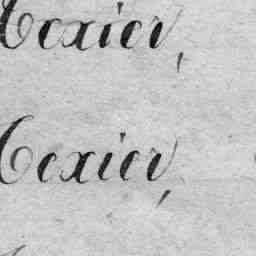 Texier,
Texier,